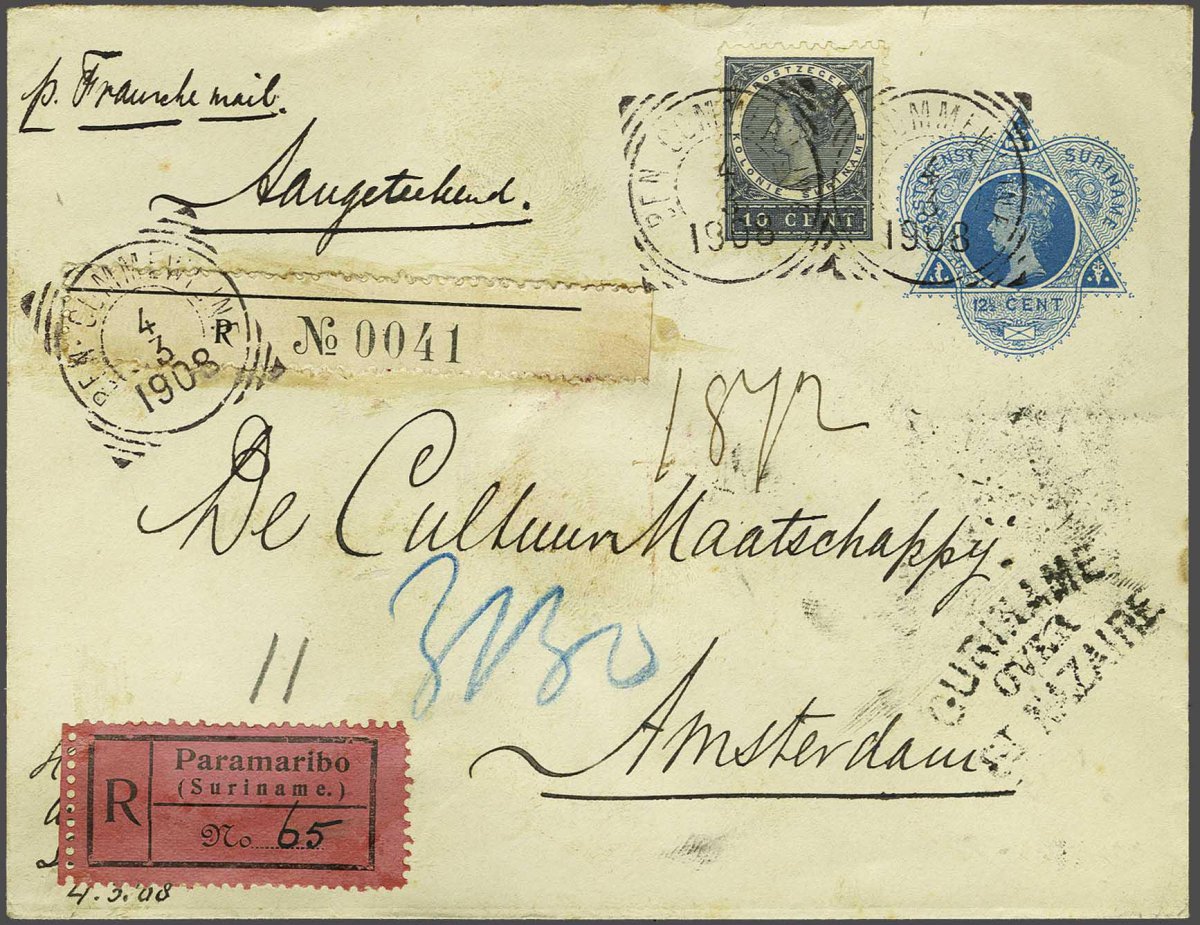 p. Fransche mail.
Aangeteekend.
POSTZEGEL
KOLONIE SURINAME
10 CENT
4
1908
3
1908
SURINAME
12½ CENT
4
3
1908
R No 0041
De Cultuur Maatschappij.
11
Amsterdam.
SURINAME
OVER
ST NAZAIRE
R
Paramaribo
(Suriname.)
No 65
4.3.'08